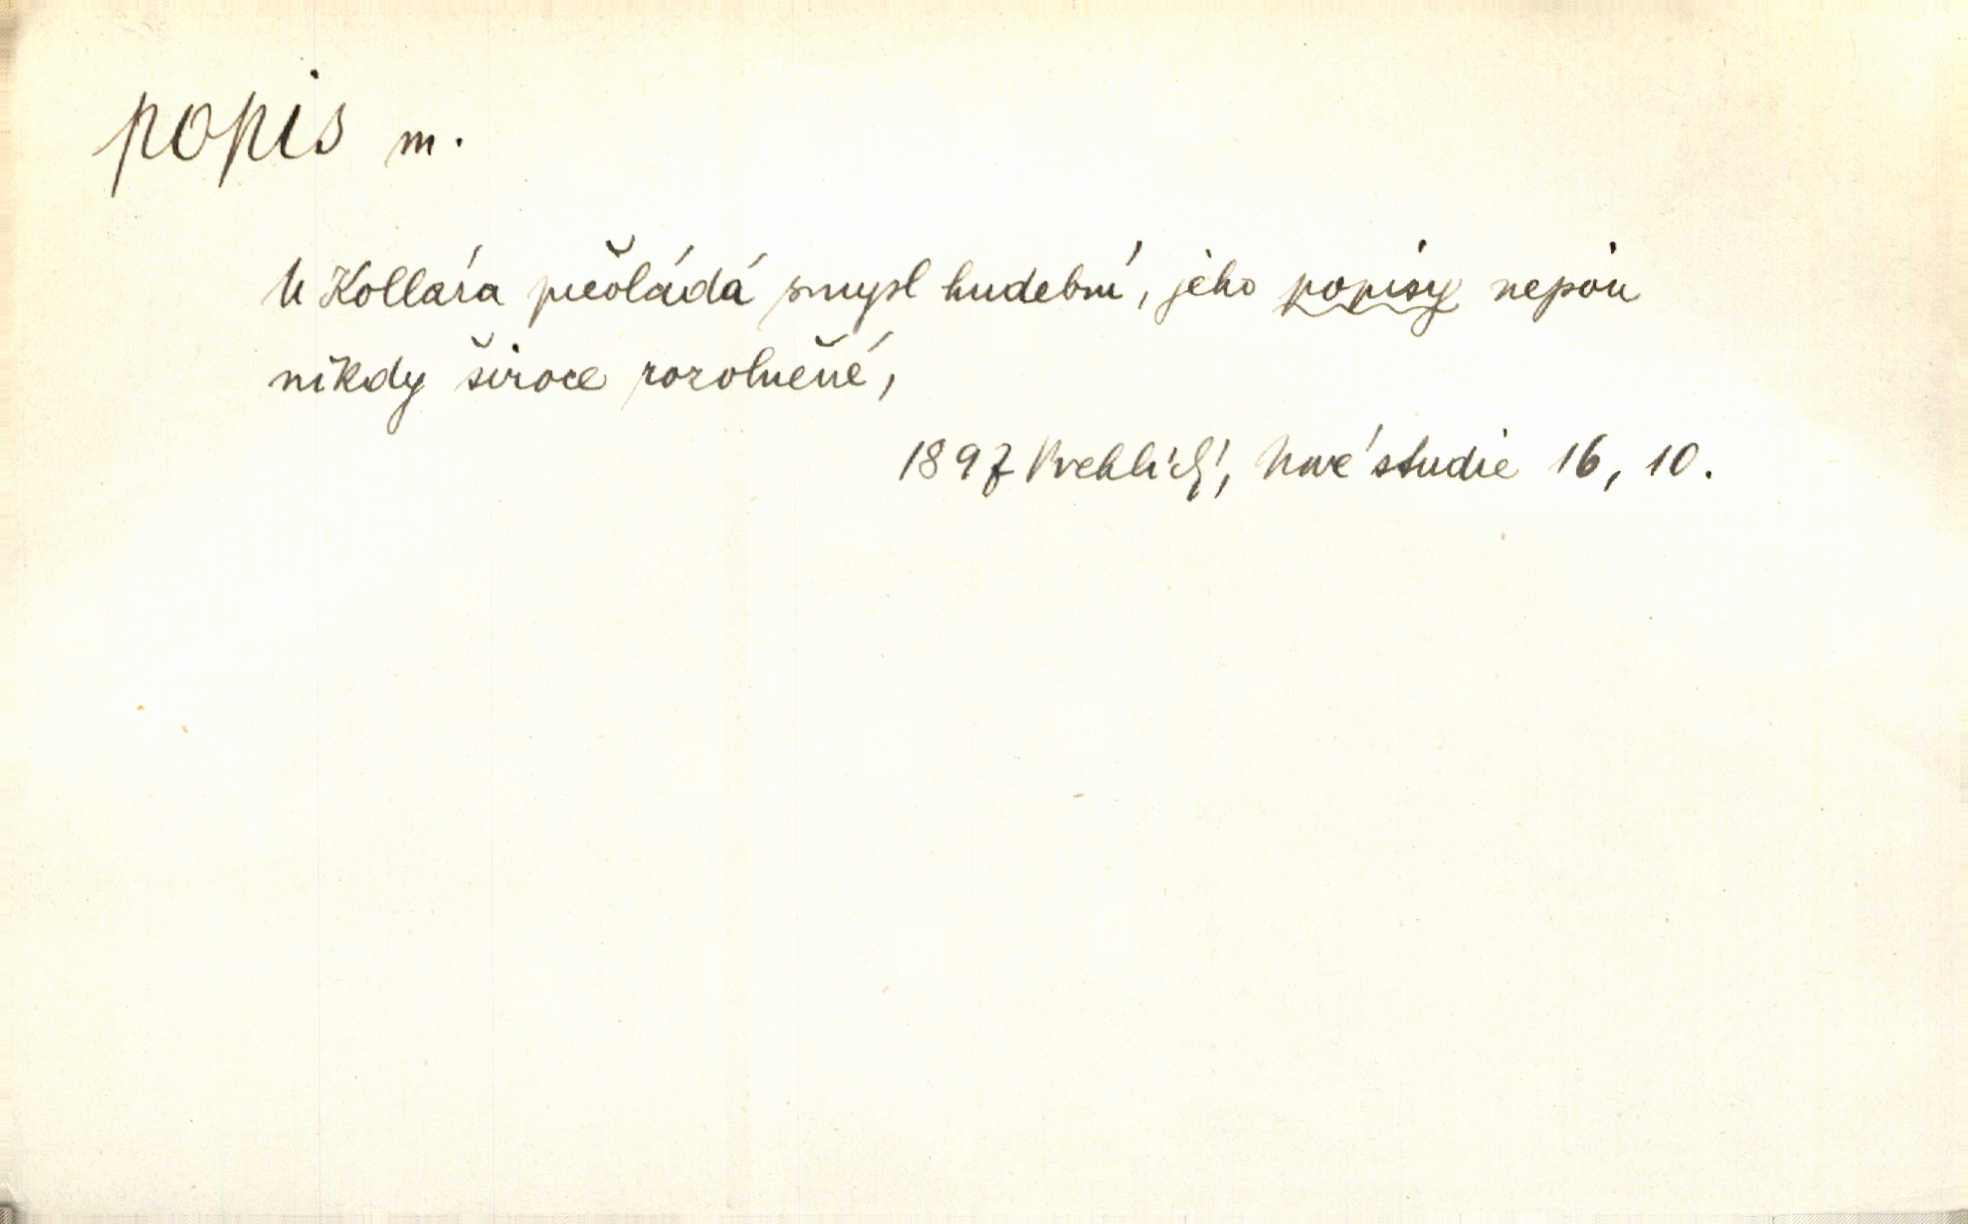 popis m.
U Kollára převládá smysl hudební, jeho popisy nejsou
nikdy široce rozvlněné,
1897 Vrchlický, Nové studie 16, 10.